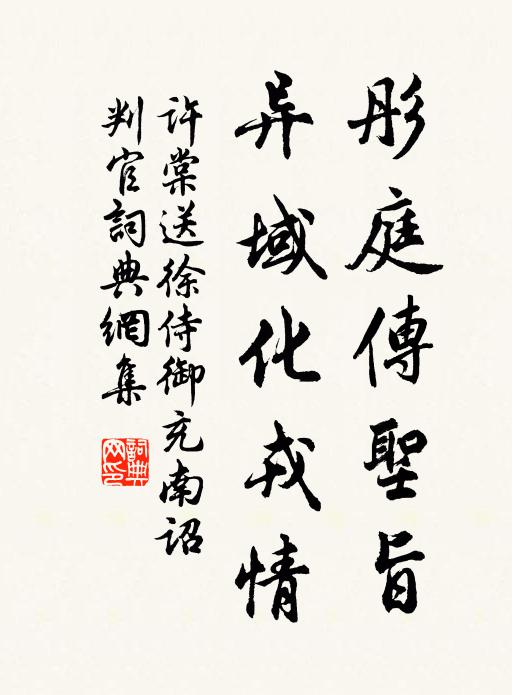 彤庭傳聖旨
异域化戎情
許棠送徐侍御充南詔
判官詞典網集
詞典网印